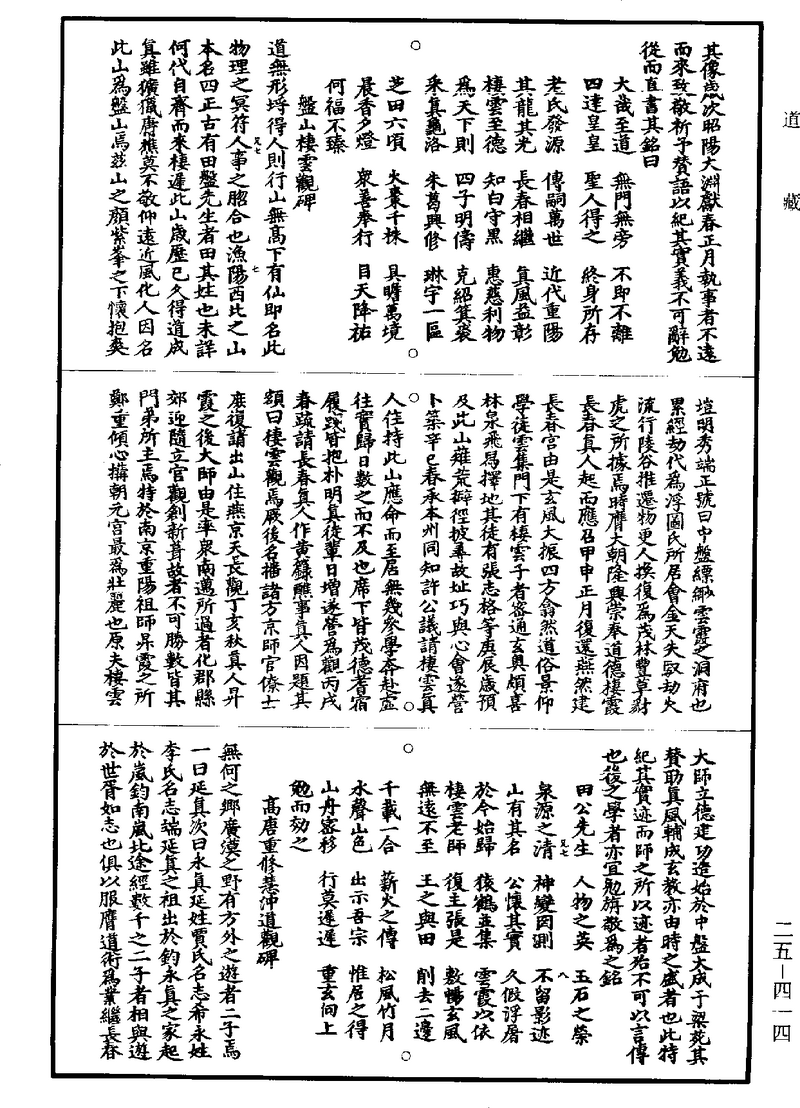 道藏
其像歲次昭陽大淵獻春正月執事者不遠
而來致敬祈予贊語以紀其實義不可辭勉
從而直書其銘曰
大哉至道 無門無旁 不即不離
四達皇皇 聖人得之 終身所存
老氏發源 傳嗣萬世 近代重陽
其龍其光 長春相繼 真風益彰
棲雲至德 知白守黑 惠慈利物
為天下則 四子明儔 克紹箕裘
采真龜洛 朱葛興修 琳宇一區
芝田六頃 火棗千株 具瞻萬境
晨香夕燈 衆善奉行 目天降祐
何福不臻
盤山棲雲觀碑
道無形埒得人則行山無高下有仙即名此
物理之冥符人事之脗合也漁陽西北之山
本名四正古有田盤先生者田其姓也未詳
何代自齊而來棲遲此山歲歷已久得道成
真雖獷獵膺樵莫不敬仰遠近風化人因名
此山為盤山焉茲山之顏紫峯之下懷抱奭
塏明秀端正號曰中盤縹緲雲霞之洞府也
累經劫代為浮圖氏所居會金天失馭劫火
流行陵谷推遷物更人換復為茂林豐草豺
虎之所據焉時膺大朝隆興崇奉道德棲霞
長春真人起而應召甲申正月復還燕然建
長春宮由是玄風大振四方翕然道俗景仰
學徒雲集門下有棲雲子者密通玄奧頗喜
林泉飛舄擇地其徒有張志格等庚辰歲預
及此山薙荒辟徑披尋故址巧與心會遂營
卜築辛巳春承本州同知許公議請棲雲真
人住持此山應命而至居無幾參學奔赴虛
往實歸日數之而不及也席下皆茂德耆宿
履踐皆抱朴明真徒輩日增遂營為觀丙戌
春疏請長春真人作黃籙醮事真人因題其
額曰棲雲觀焉厥後名播諸方京師官僚士
庶復請出山住燕京天長觀丁亥秋真人昇
霞之後大師由是率衆南邁所過者化郡縣
郊迎隨立官觀創新葺故者不可勝數皆其
門弟所主焉特於南京重陽祖師昇霞之所
鄭重傾心搆朝元宮最為壯麗也原夫棲雲
大師立德建功造始於中盤大成于梁苑其
贊助真風輔成玄教亦由時之盛者也此特
紀其實迹而師之所以迹者殆不可以言傳
也後之學者亦宜勉旃敬為之銘
田公先生 人物之英 玉石之榮
泉源之清 神變罔測 不留影迹
山有其名 公懷其實 久假浮屠
於今始歸 猿鶴亟集 雲霞以依
棲雲老師 復主張是 敷暢玄風
無遠不至 王之與田 削去二邊
千載一合 薪火之傳 松風竹月
水聲山色 出示吾宗 惟居之得
山舟密移 行莫遲遲 重玄向上
勉而効之
高唐重修慧沖道觀碑
無何之鄉廣漠之野有方外之遊者二子焉
一曰延真次曰永真延姓賈氏名志希永姓
李氏名志端延真之祖出於鈞永真之家起
於嵐鈞南嵐北途經數千之二子者相與遊
於世胥如志也俱以服膺道術為業繼長春
二五—四一四